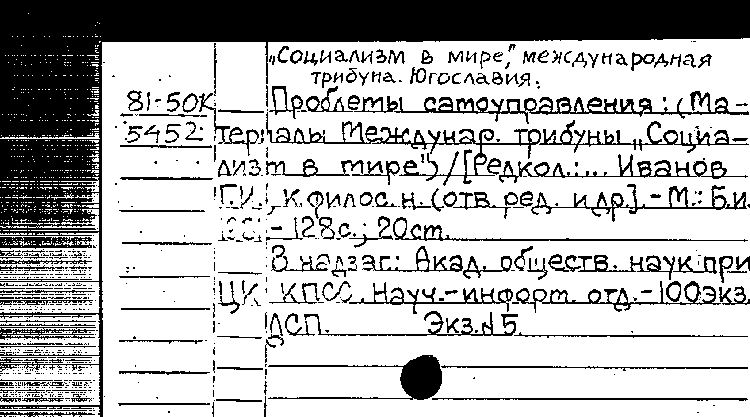 „Социализм в мире", международная
трибуна. Югославия.
81-50К Проблемы самоуправления: (Ма-
5452 териалы Междунар. трибуны „Социа-
лизм в мире")/[Редкол.:... Иванов
Г.И., к.филос.н. (отв. ред. и др.]. - М.: Б.и.
- 128с.; 20см.
В надзаг.: Акад. обществ. наук при
ЦК КПСС. Науч.-информ. отд. - 100экз.
ДСП. Экз.№5.